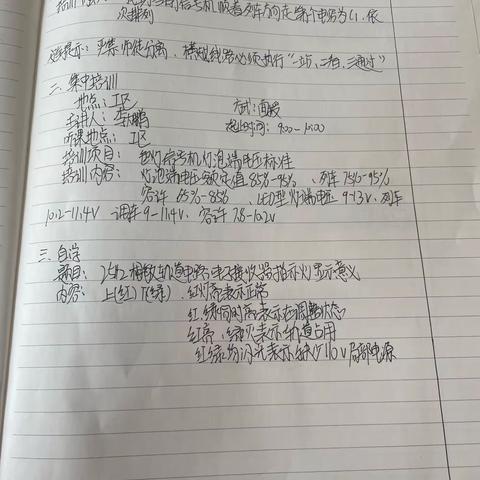 次排列
严禁师徒分离、横越线路必须执行“一站、二看、三通过”
二、集中培训
地点：工区 方式：面授
主讲人：李鹏 起止时间：9:00-10:00
听课地点：工区
培训项目：色灯信号机灯泡端电压标准
培训内容：灯泡端电压额定值85%-95%、列车75%-95%
容许65%-85%、LED型灯端电压9-13V、列车
10.2-11.4V 调车9-11.4V、容许7.8-10.2V
三、自学
题目：25Hz相敏轨道电路电子接收器指示灯显示意义
内容：上(红)下(绿)、红灯亮表示正常
红、绿同时亮表示在调整状态
红亮、绿灭表示轨道占用
红绿均闪光表示缺少110V局部电源